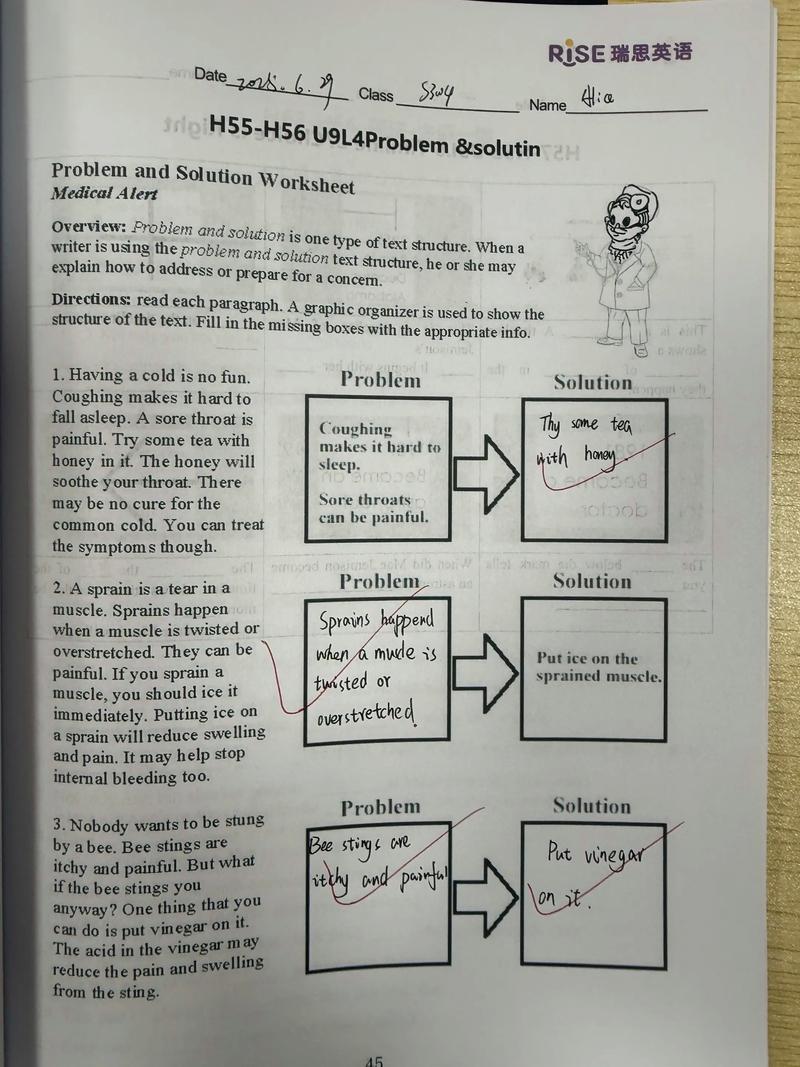 RiSE 瑞思英语
Date 2025.6.29 Class S3W4 Name Alice
H55-H56 U9L4Problem &solutin
Problem and Solution Worksheet
Medical Alert
Overview: Problem and solution is one type of text structure. When a
writer is using the problem and solution text structure, he or she may
explain how to address or prepare for a concern.
Directions: read each paragraph. A graphic organizer is used to show the
structure of the text. Fill in the missing boxes with the appropriate info.
1. Having a cold is no fun.
Coughing makes it hard to
fall asleep. A sore throat is
painful. Try some tea with
honey in it. The honey will
soothe your throat. There
may be no cure for the
common cold. You can treat
the symptoms though.
Problem
Coughing
makes it hard to
sleep.
Sore throats
can be painful.
Solution
Thy some tea
with honey
2. A sprain is a tear in a
muscle. Sprains happen
when a muscle is twisted or
overstretched. They can be
painful. If you sprain a
muscle, you should ice it
immediately. Putting ice on
a sprain will reduce swelling
and pain. It may help stop
internal bleeding too.
Problem
Sprains happend
when a muscle is
twisted or
overstretched.
Solution
Put ice on the
sprained muscle.
3. Nobody wants to be stung
by a bee. Bee stings are
itchy and painful. But what
if the bee stings you
anyway? One thing that you
can do is put vinegar on it.
The acid in the vinegar may
reduce the pain and swelling
from the sting.
Problem
Bee stings are
itchy and painful
Solution
Put vinegar
on it.
45